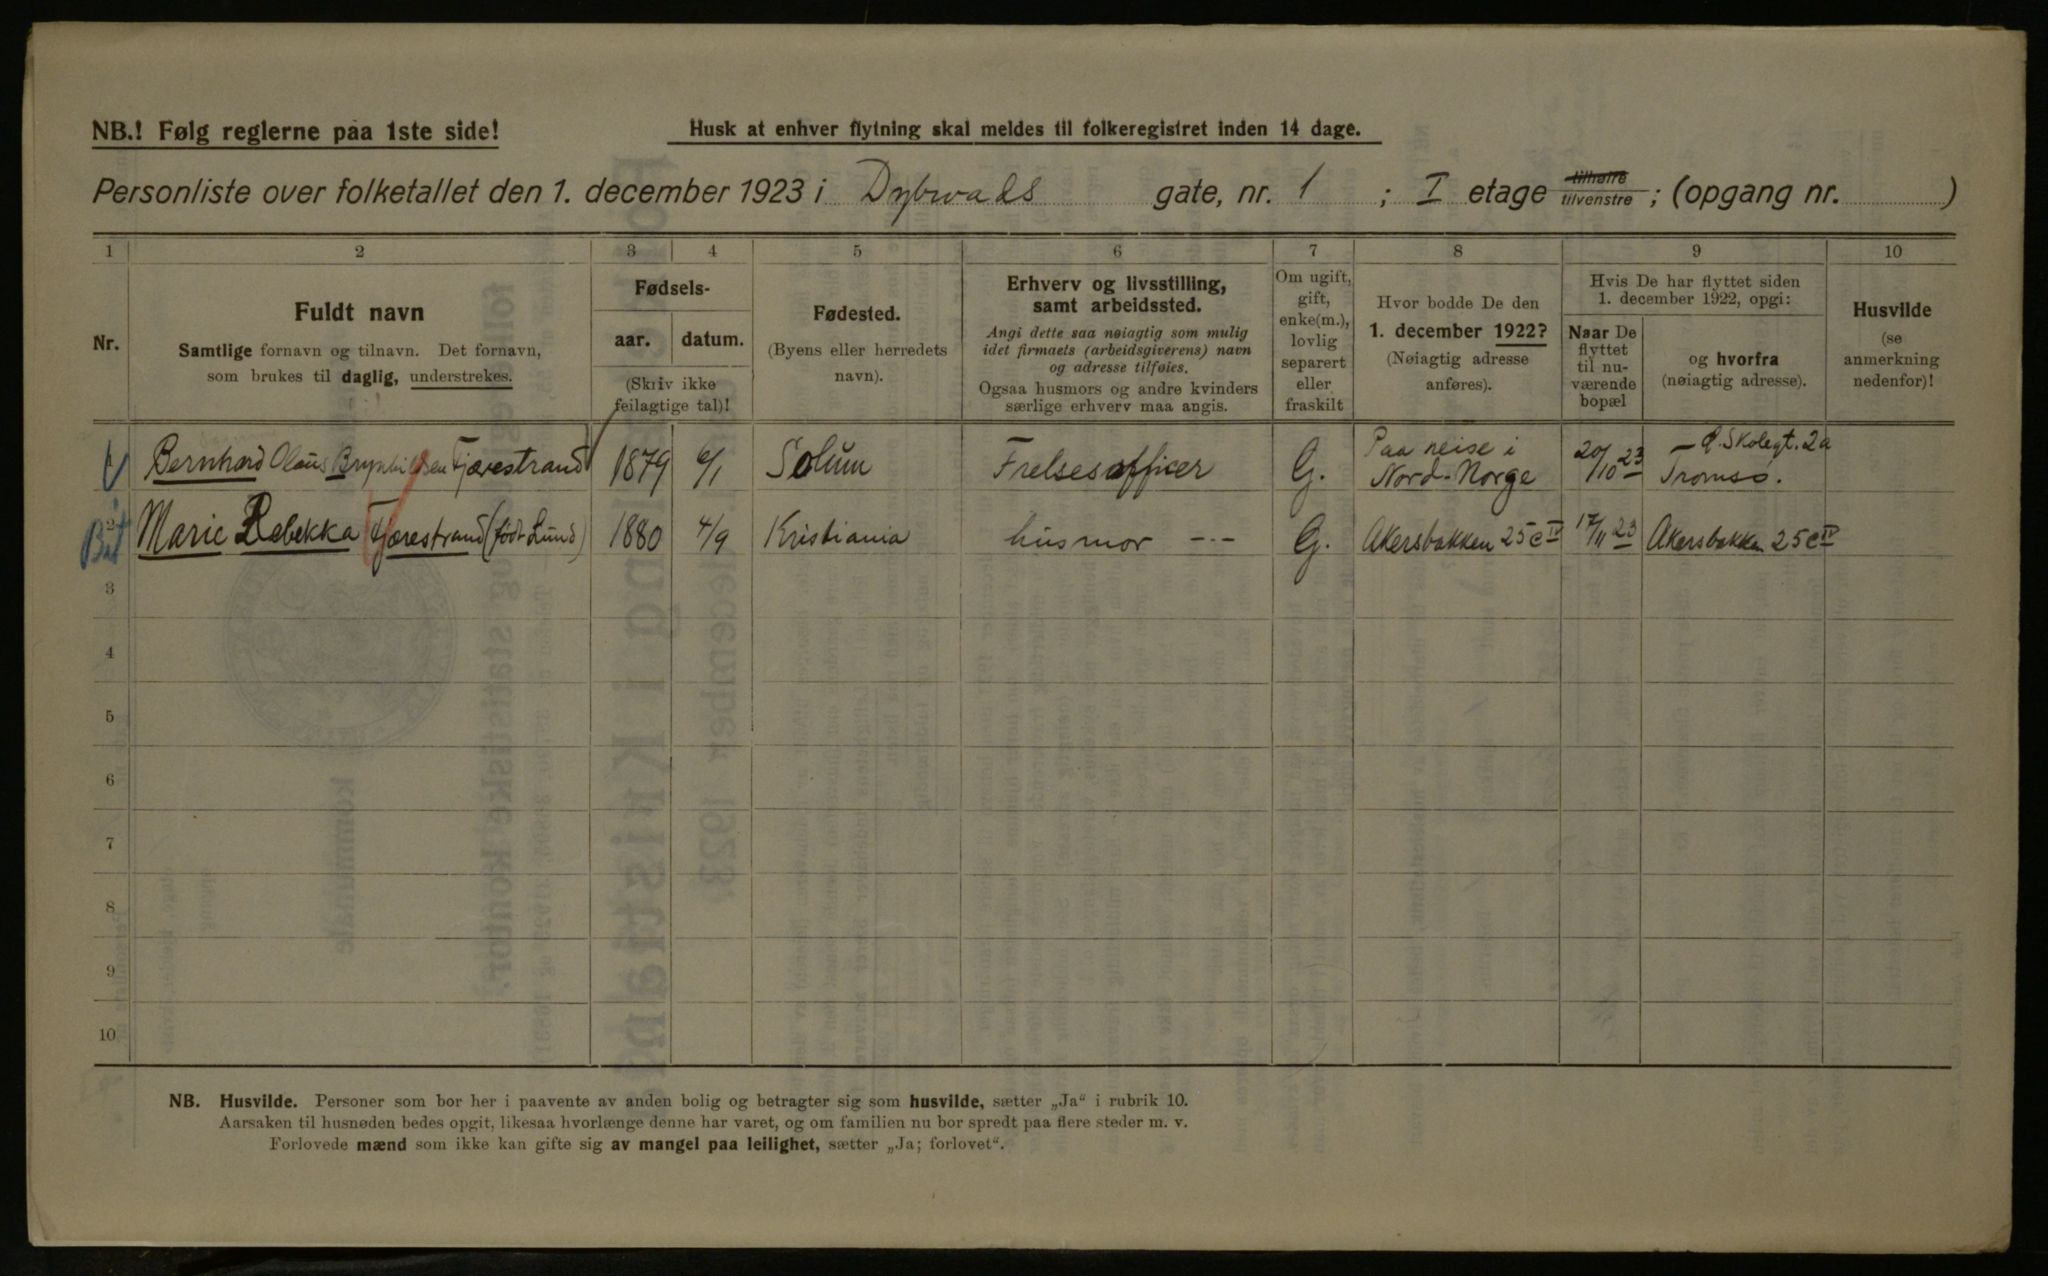 NB.! Følg reglerne paa 1ste side!
Husk at enhver flytning skal meldes til folkeregistret inden 14 dage.
Personliste over folketallet den 1. december 1923 i Dybwads gate, nr. 1 ; I etage tilhøire tilvenstre ; (opgang nr. )
1 2 3 4 5 6 7 8 9 10
Nr.
Fuldt navn
Samtlige fornavn og tilnavn. Det fornavn,
som brukes til daglig, understrekes.
Fødsels-
aar. datum.
(Skriv ikke
feilagtige tal)!
Fødested.
(Byens eller herredets
navn).
Erhverv og livsstilling,
samt arbeidssted.
Angi dette saa nøiagtig som mulig
idet firmaets (arbeidsgiverens) navn
og adresse tilføies.
Ogsaa husmors og andre kvinders
særlige erhverv maa angis.
Om ugift,
gift,
enke(m.),
lovlig
separert
eller
fraskilt
Hvor bodde De den
1. december 1922?
(Nøiagtig adresse
anføres).
Hvis De har flyttet siden
1. december 1922, opgi:
Naar De
flyttet
til nu-
værende
bopæl
og hvorfra
(nøiagtig adresse).
Husvilde
(se
anmerkning
nedenfor)!
Bernhard Olaus Brynhildsen Fjærestrand 1879 6/1 Solum Frelsesofficer G. Paa reise i Nord-Norge 20/10 23 Skolegt. 2a Tromsø.
2 Marie Rebekka Fjærestrand (født Lund) 1880 4/9 Kristiania husmor -"- G. Akersbakken 25 c IV 17/11 23 Akersbakken 25 c IV
3
4
5
6
7
8
9
10
NB. Husvilde. Personer som bor her i paavente av anden bolig og betragter sig som husvilde, sætter „Ja“ i rubrik 10.
Aarsaken til husnøden bedes opgit, likesaa hvorlænge denne har varet, og om familien nu bor spredt paa flere steder m. v.
Forlovede mænd som ikke kan gifte sig av mangel paa leilighet, sætter „Ja; forlovet“.